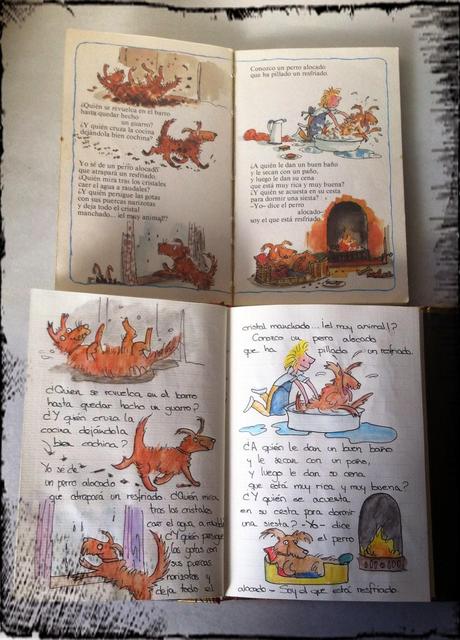 ¿Quién se revuelca en el barro
hasta quedar hecho
un guarro?
¿Y quién cruza la cocina
dejándola bien cochina?
Yo sé de un perro alocado
que atrapará un resfriado.
¿Quién mira tras los cristales
caer el agua a raudales?
¿Y quién persigue las gotas
con sus puercas narizotas
y deja todo el cristal
manchado... ¡el muy animal!?
Conozco un perro alocado
que ha pillado un resfriado.
¿A quién le dan un buen baño
y le secan con un paño,
y luego le dan su cena
que está muy rica y muy buena?
¿Y quién se acuesta en su cesta
para dormir una siesta?
–Yo– dice el perro
alocado–
soy el que está resfriado.
¿Quien se revuelca en el barro
hasta quedar hecho un guarro?
¿Y quién cruza la
cocina dejándola
bien cochina?
Yo sé de
un perro alocado
que atrapará un resfriado. ¿Quién mira
tras los cristales
caer el agua a raudales
¿Y quién persigue
las gotas con
sus puercas
narizotas y
deja todo el
cristal manchado... ¡el muy animal!?
Conozco un perro alocado
que ha pillado un resfriado.
¿A quién le dan un buen baño
y le secan con un paño,
y luego le dan su cena
que está muy rica y muy buena?
¿Y quién se acuesta
en su cesta para dormir
una siesta? -Yo- dice
el perro
alocado - Soy el que está resfriado.